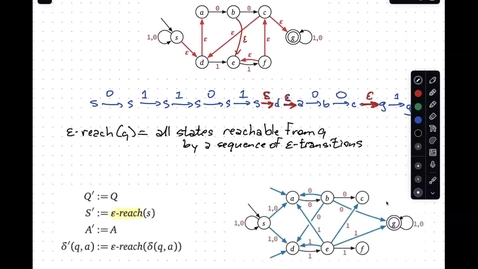 a 0 b 0 c
1,0 s ε ε ε ε ε ε g 1,0
d 1 e 1 f
s 0 s 1 s 1 s 0 s 1 s ε d ε a 0 b 0 c ε g 1 g
ε-reach(q) = all states reachable from q
by a sequence of ε-transitions
Q′ := Q
S′ := ε-reach(s)
A′ := A
δ′(q, a) := ε-reach(δ(q, a))
a 0 b 0 c
1,0 s g 1,0
d 1 e 1 f